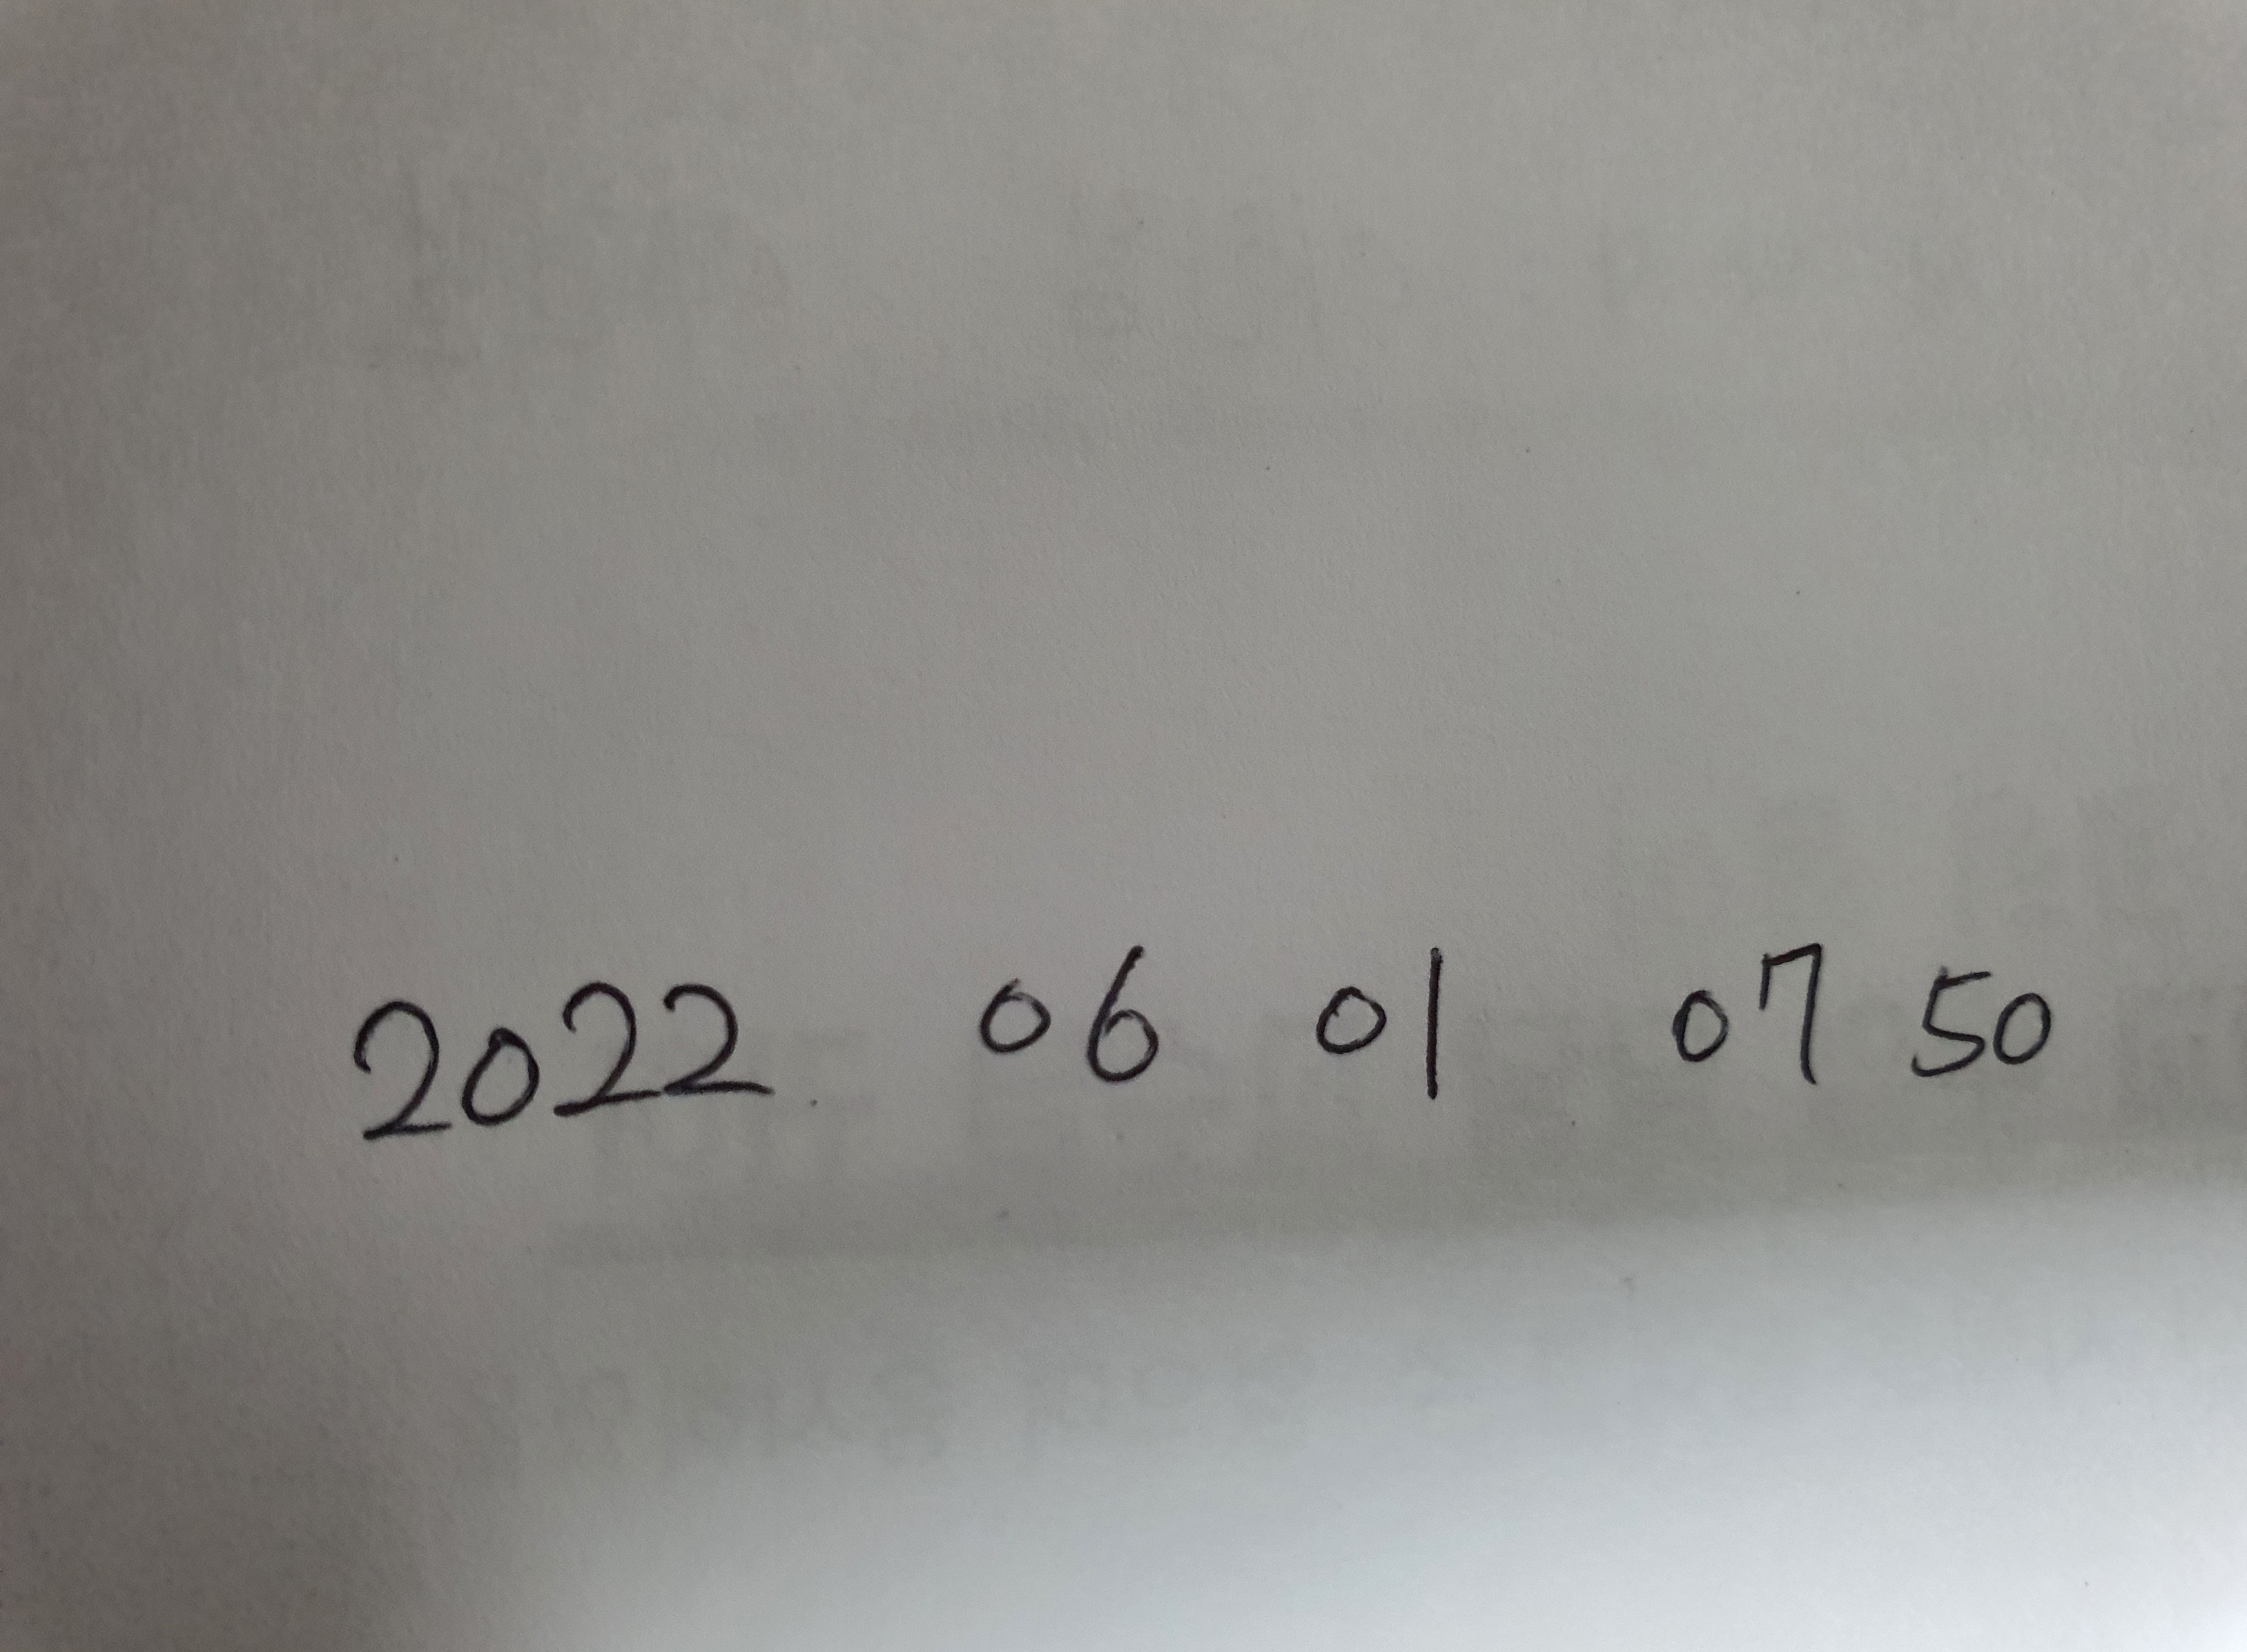 2022 06 01 07 50